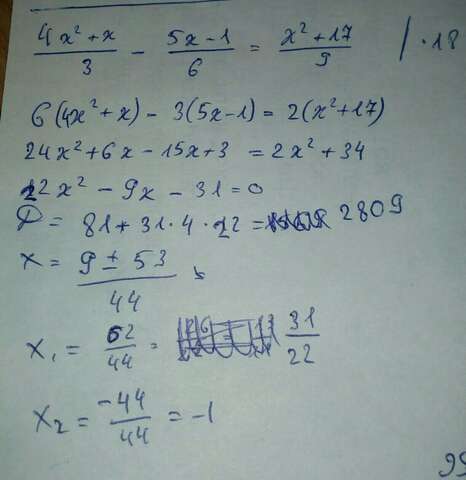 (4x² + x)/3 - (5x - 1)/6 = (x² + 17)/9 | · 18
6(4x² + x) - 3(5x - 1) = 2(x² + 17)
24x² + 6x - 15x + 3 = 2x² + 34
22x² - 9x - 31 = 0
D = 81 + 31 · 4 · 22 = 2809
x = (9 ± 53)/44
x₁ = 62/44 = 31/22
x₂ = -44/44 = -1